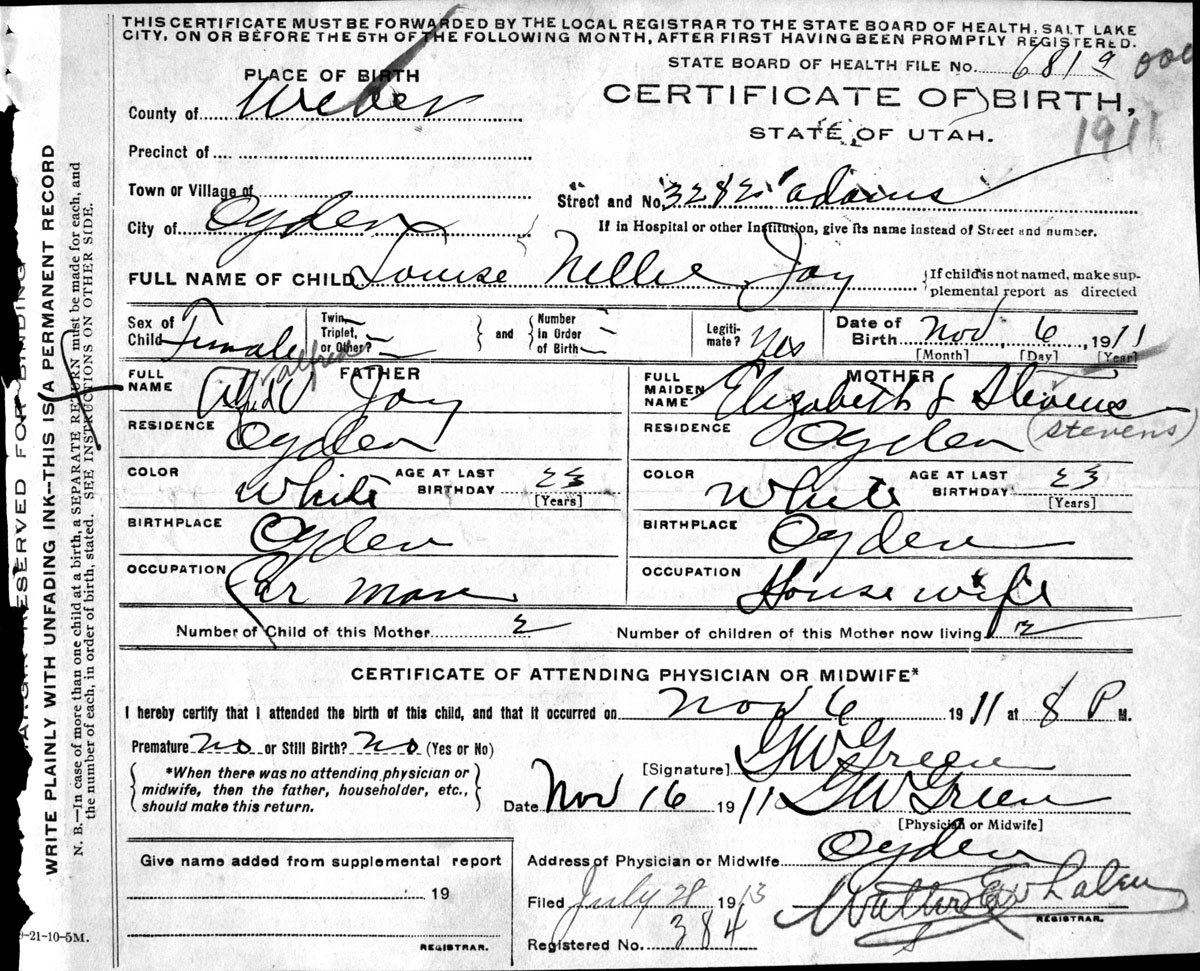 THIS CERTIFICATE MUST BE FORWARDED BY THE LOCAL REGISTRAR TO THE STATE BOARD OF HEALTH, SALT LAKE
CITY, ON OR BEFORE THE 5TH OF THE FOLLOWING MONTH, AFTER FIRST HAVING BEEN PROMPTLY REGISTERED.
STATE BOARD OF HEALTH FILE No. 6819
PLACE OF BIRTH
CERTIFICATE OF BIRTH,
County of Weber
STATE OF UTAH.
1911
Precinct of
Town or Village of
Street and No. 3282 Adams
City of Ogden
If in Hospital or other Institution, give its name instead of Street and number.
FULL NAME OF CHILD Louise Nellie Joy
{If child is not named, make sup-
plemental report as directed
Sex of Child Female
Twin, Triplet, or Other?
and
Number in Order of Birth
Legiti- mate? Yes
Date of Birth Nov, 6, 1911
[Month] [Day] [Year]
FATHER
FULL NAME Alfred Joy
Alfred
RESIDENCE Ogden
COLOR White
AGE AT LAST BIRTHDAY 23
[Years]
BIRTHPLACE Ogden
OCCUPATION Car man
MOTHER
FULL MAIDEN NAME Elizabeth J Stevens
RESIDENCE Ogden (Stevens)
COLOR White
AGE AT LAST BIRTHDAY 23
[Years]
BIRTHPLACE Ogden
OCCUPATION Housewife
Number of Child of this Mother 2
Number of children of this Mother now living 2
CERTIFICATE OF ATTENDING PHYSICIAN OR MIDWIFE*
I hereby certify that I attended the birth of this child, and that it occurred on Nov 6 1911 at 8 P M.
Premature No or Still Birth? No (Yes or No)
{*When there was no attending physician or
midwife, then the father, householder, etc.,
should make this return.}
[Signature] GW Green
Date Nov 16 1911 GW Green
[Physician or Midwife]
Give name added from supplemental report
19
REGISTRAR.
Address of Physician or Midwife Ogden
Filed July 28 1913 Walter E Whalen
REGISTRAR.
Registered No. 384
RESERVED FOR BINDING
WRITE PLAINLY WITH UNFADING INK—THIS IS A PERMANENT RECORD
N. B.—In case of more than one child at a birth, a SEPARATE RETURN must be made for each, and
the number of each, in order of birth, stated. SEE INSTRUCTIONS ON OTHER SIDE.
-21-10-5M.